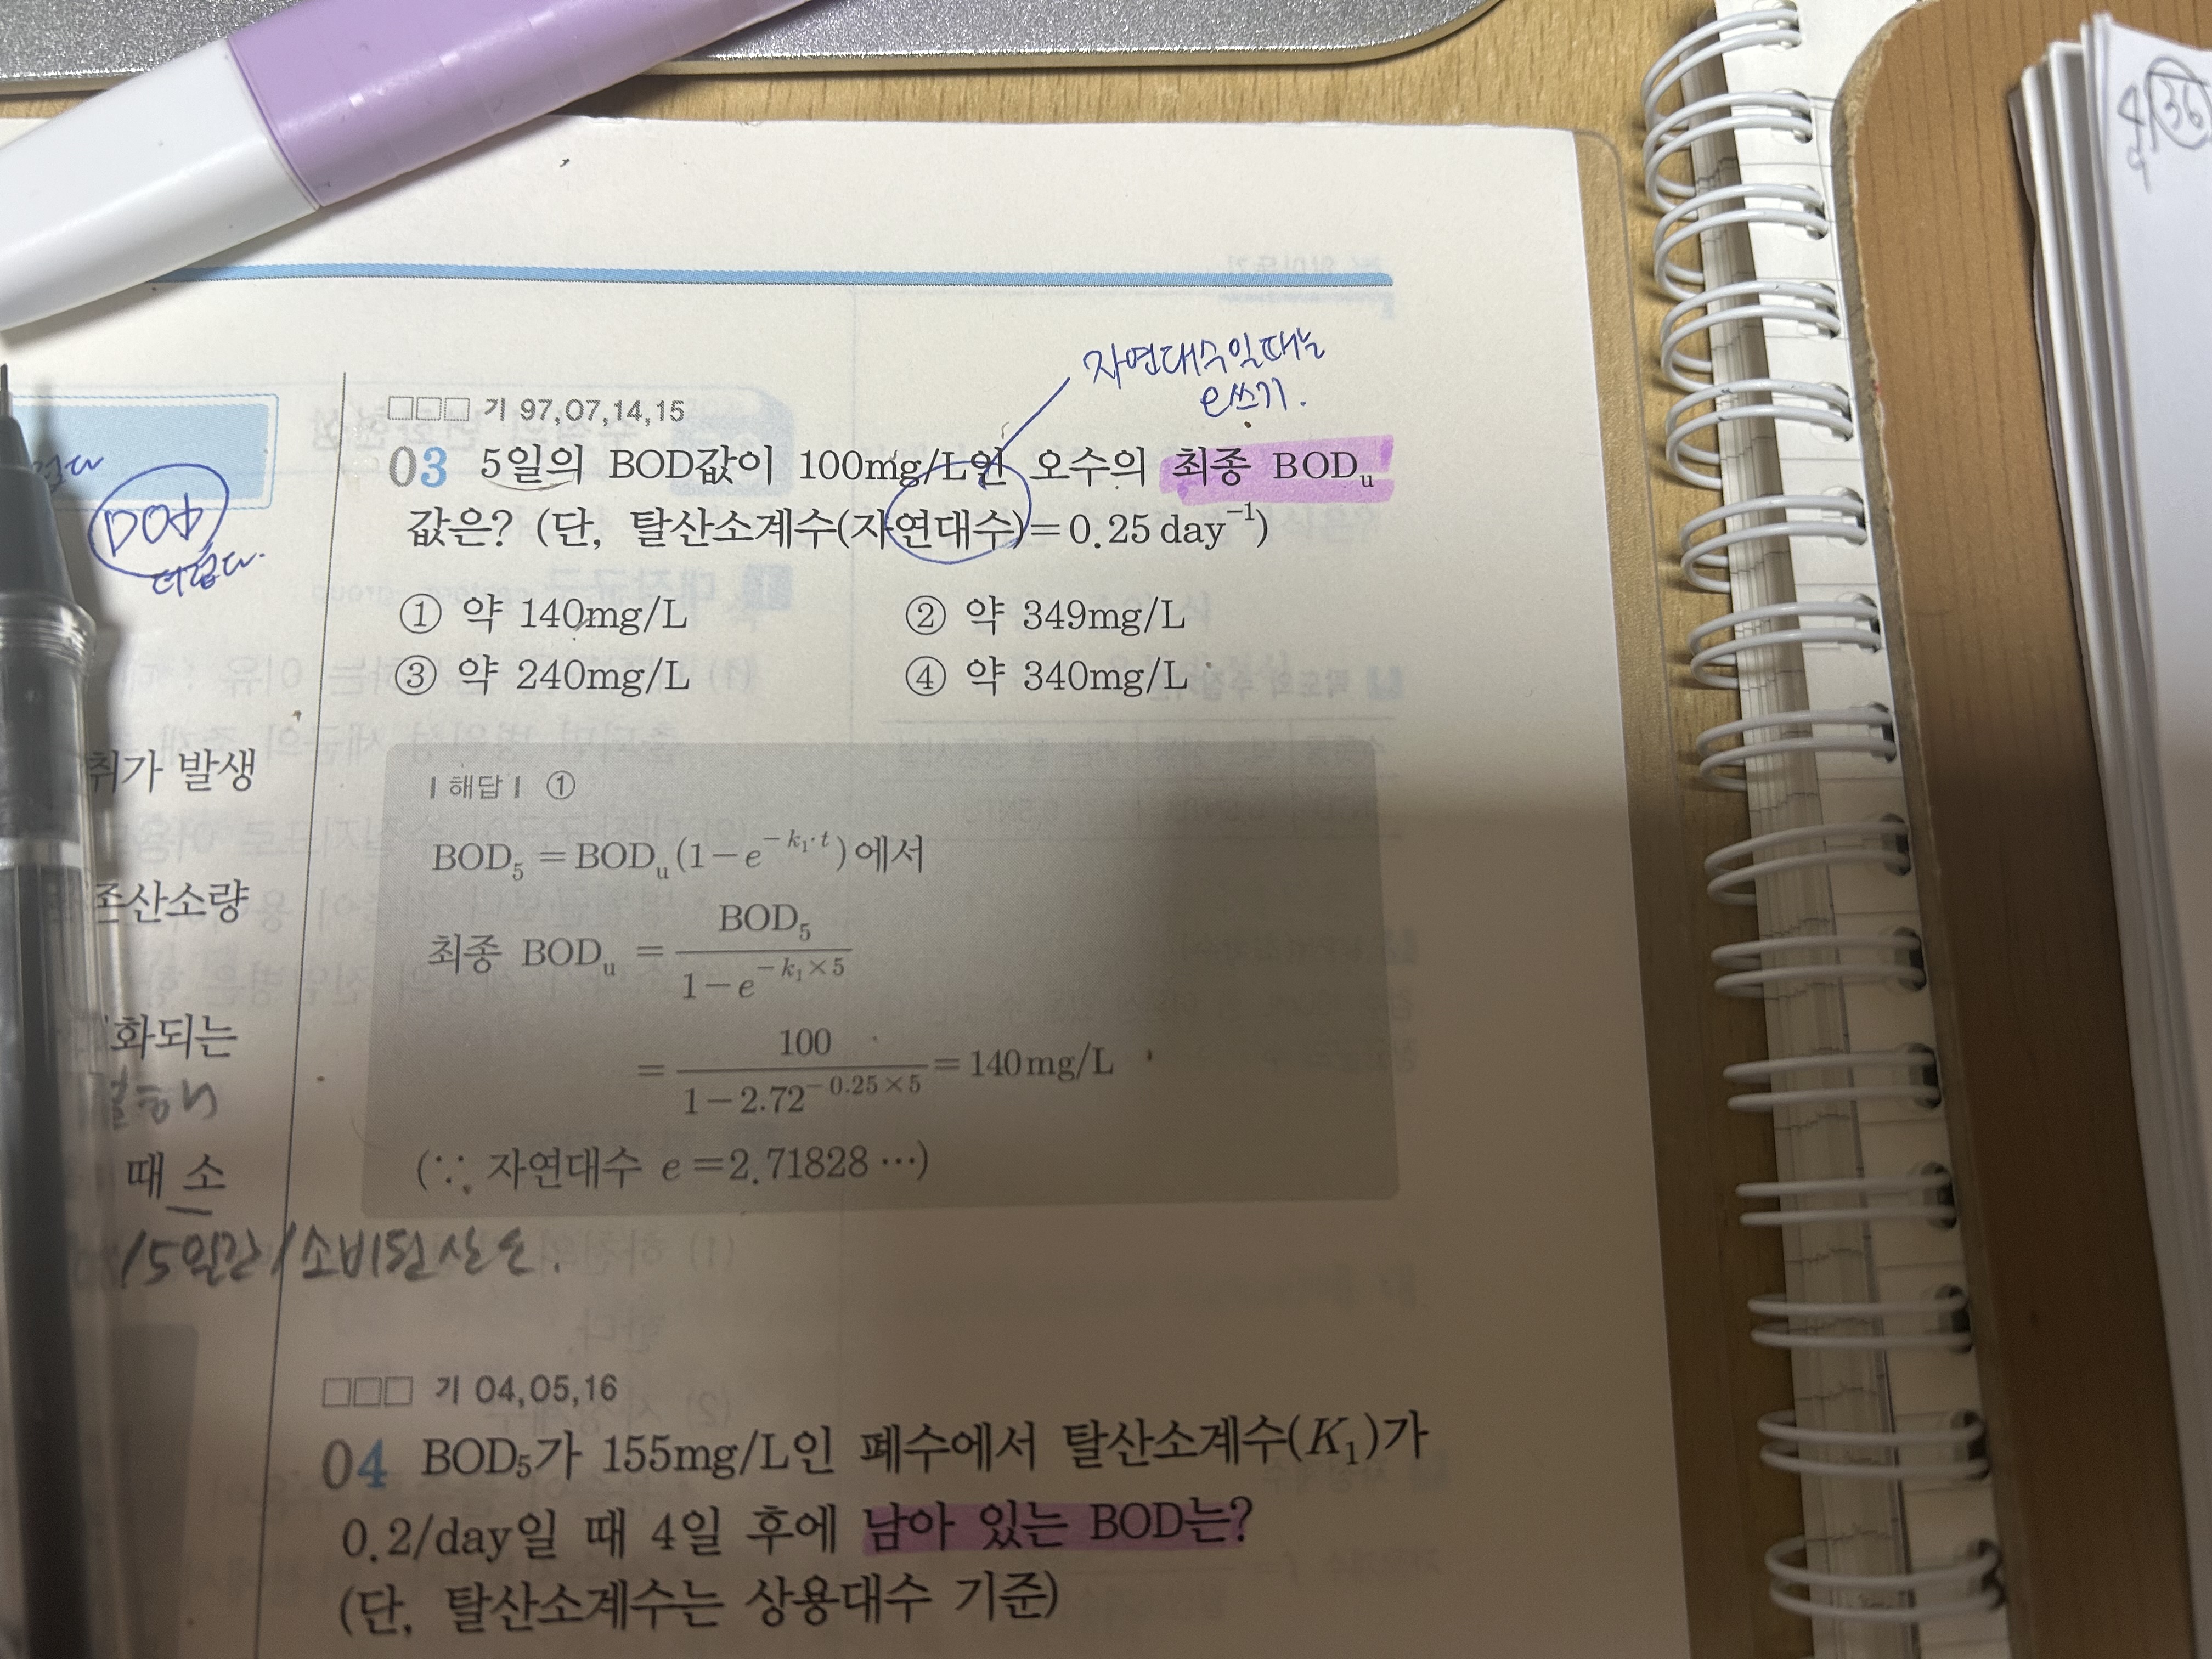 자연대수일때는
e쓰기.
□□□ 기 97,07,14,15
03 5일의 BOD값이 100mg/L인 오수의 최종 BODᵤ
값은? (단, 탈산소계수(자연대수)=0.25day⁻¹)
① 약 140mg/L ② 약 349mg/L
③ 약 240mg/L ④ 약 340mg/L
| 해답 | ①
BOD₅ = BODᵤ(1-e^(-k₁·t))에서
최종 BODᵤ = BOD₅ / (1-e^(-k₁×5))
= 100 / (1-2.72^(-0.25×5)) = 140mg/L
(∵ 자연대수 e=2.71828 ···)
□□□ 기 04,05,16
04 BOD₅가 155mg/L인 폐수에서 탈산소계수(K₁)가
0.2/day일 때 4일 후에 남아 있는 BOD는?
(단, 탈산소계수는 상용대수 기준)
더럽다.
취가 발생
존산소량
화되는
때 소
/5일간/소비된산소.
36